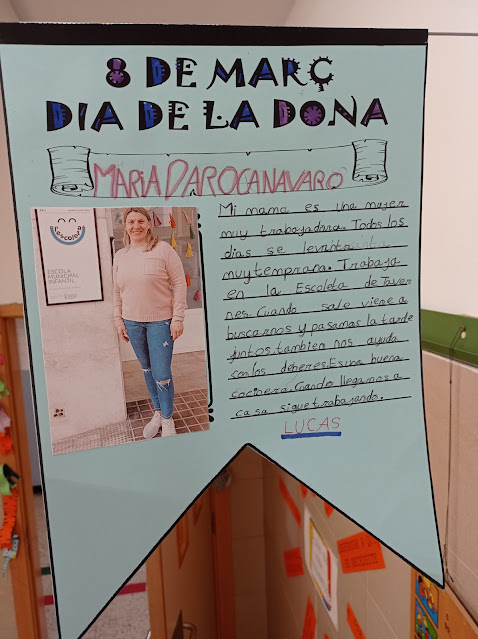 8 DE MARÇ
DIA DE LA DONA
MARIA DAROCA NAVARO
Mi mama es una mujer
muy trabajadora. Todos los
dias se levanta
muy temprana. Trabaja
en la Escoleta de Taver
nes. Cuando sale viene a
buscarnos y pasamos la tarde
juntos, tambien nos ayuda
con los deberes. Es una buena
cocinera. Cuando llegamos a
casa sigue trabajando.
LUCAS
l'escoleta
ESCOLA
MUNICIPAL
INFANTIL